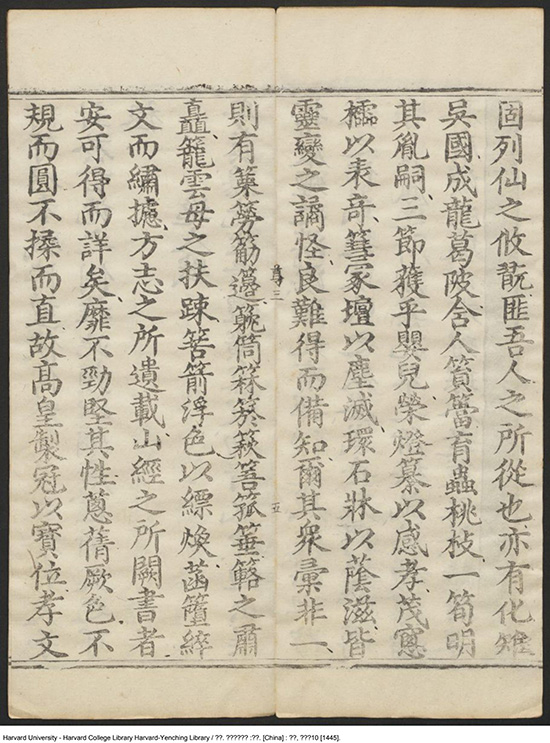 固列仙之攸翫匪吾人之所從也亦有化雉
吳國成龍葛陂含人篔簹育蟲桃枝一筍明
其胤嗣三節乎嬰兒榮燈纂以感孝茂
櫺以表竒篲冢壇以塵滅環石牀以蔭滋皆
靈變之譎怪良難得而備知爾其衆彙非一
三
五
則有篥筋筒箖箊篍箛箠之
矗籠雲母之扶踈箭浮色以縹煥菡綷
文而繡攄方志之所遺載山經之所闕書者
安可得而詳矣靡不勁堅其性蔥蒨厥色不
規而圓不揉而直故髙皇製冠以寳位孝文
Harvard University - Harvard College Library Harvard-Yenching Library / ??. ?????? :??. [China] : ??, ???10 [1445].